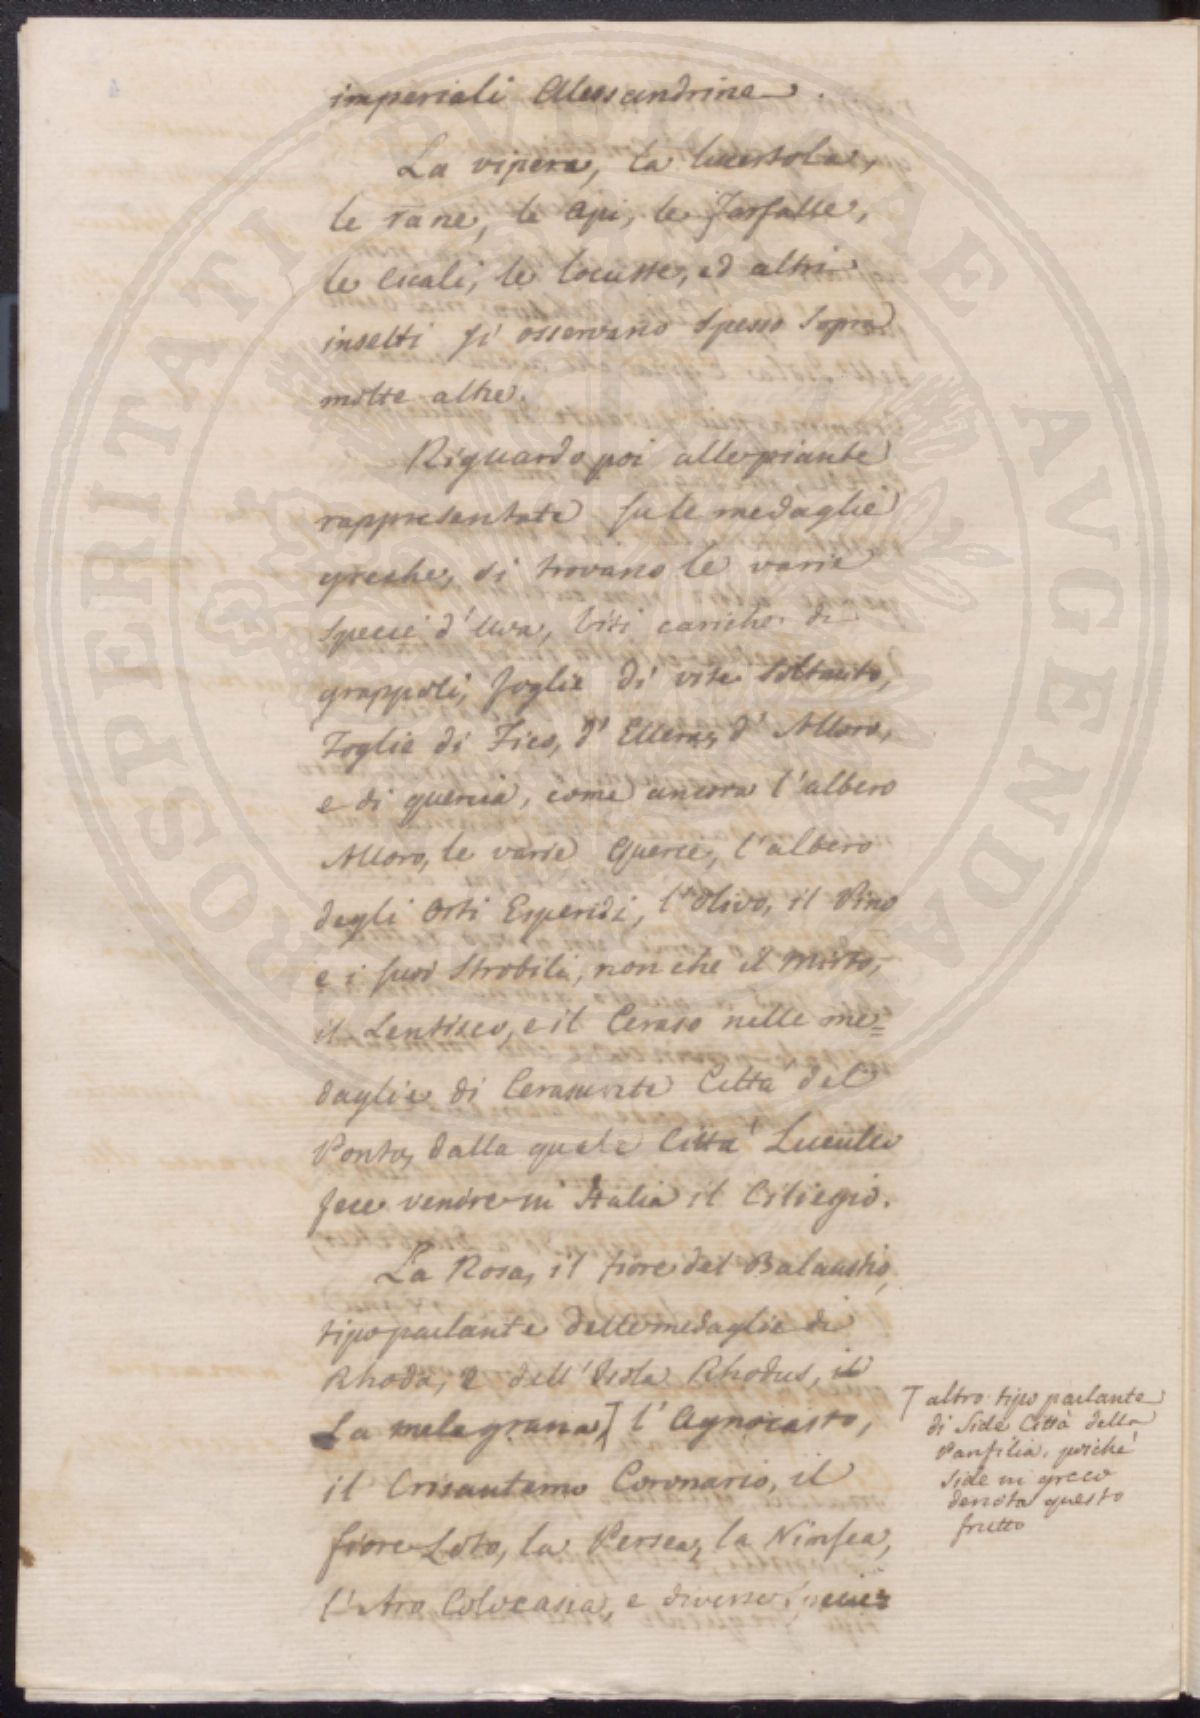 imperiali Alessandrine.
La vipera, la lucertola,
le rane, le Api, le Farfalle,
le cicali, le locuste, ed altri
insetti si osservano spesso sopra
molte altre.
Riguardo poi alle piante
rappresentate su le medaglie
greche, si trovano le varie
specie d'uva, viti cariche di
grappoli, foglie di vite soltanto,
Foglie di Fico, d'Ellera, d'Alloro,
e di quercia, come ancora l'albero
Alloro, le varie Querce, l'albero
degli Orti Esperidi, l'olivo, il Pino
e i suoi strobili, non che il Mirto,
il Lentisco, e il Ceraso nelle me=
daglie di Città del
Ponto, dalla quale Città Lucullo
fece venire in Italia il Ciliegio.
La Rosa, il fiore del Balaustio,
tipo parlante delle medaglie di
Rhoda, e dell'Isola Rhodus, il
La melagrana, l'Agnocasto,
il Crisantemo Coronario, il
fiore Loto, la Persea, la Ninfea,
l'Aro Colocasia, e diverse specie
altro tipo parlante
di Side Città della
Panfilia, poichè
Side in greco
denota questo
frutto
PROSPERITATI PVBLICAE AVGENDAE